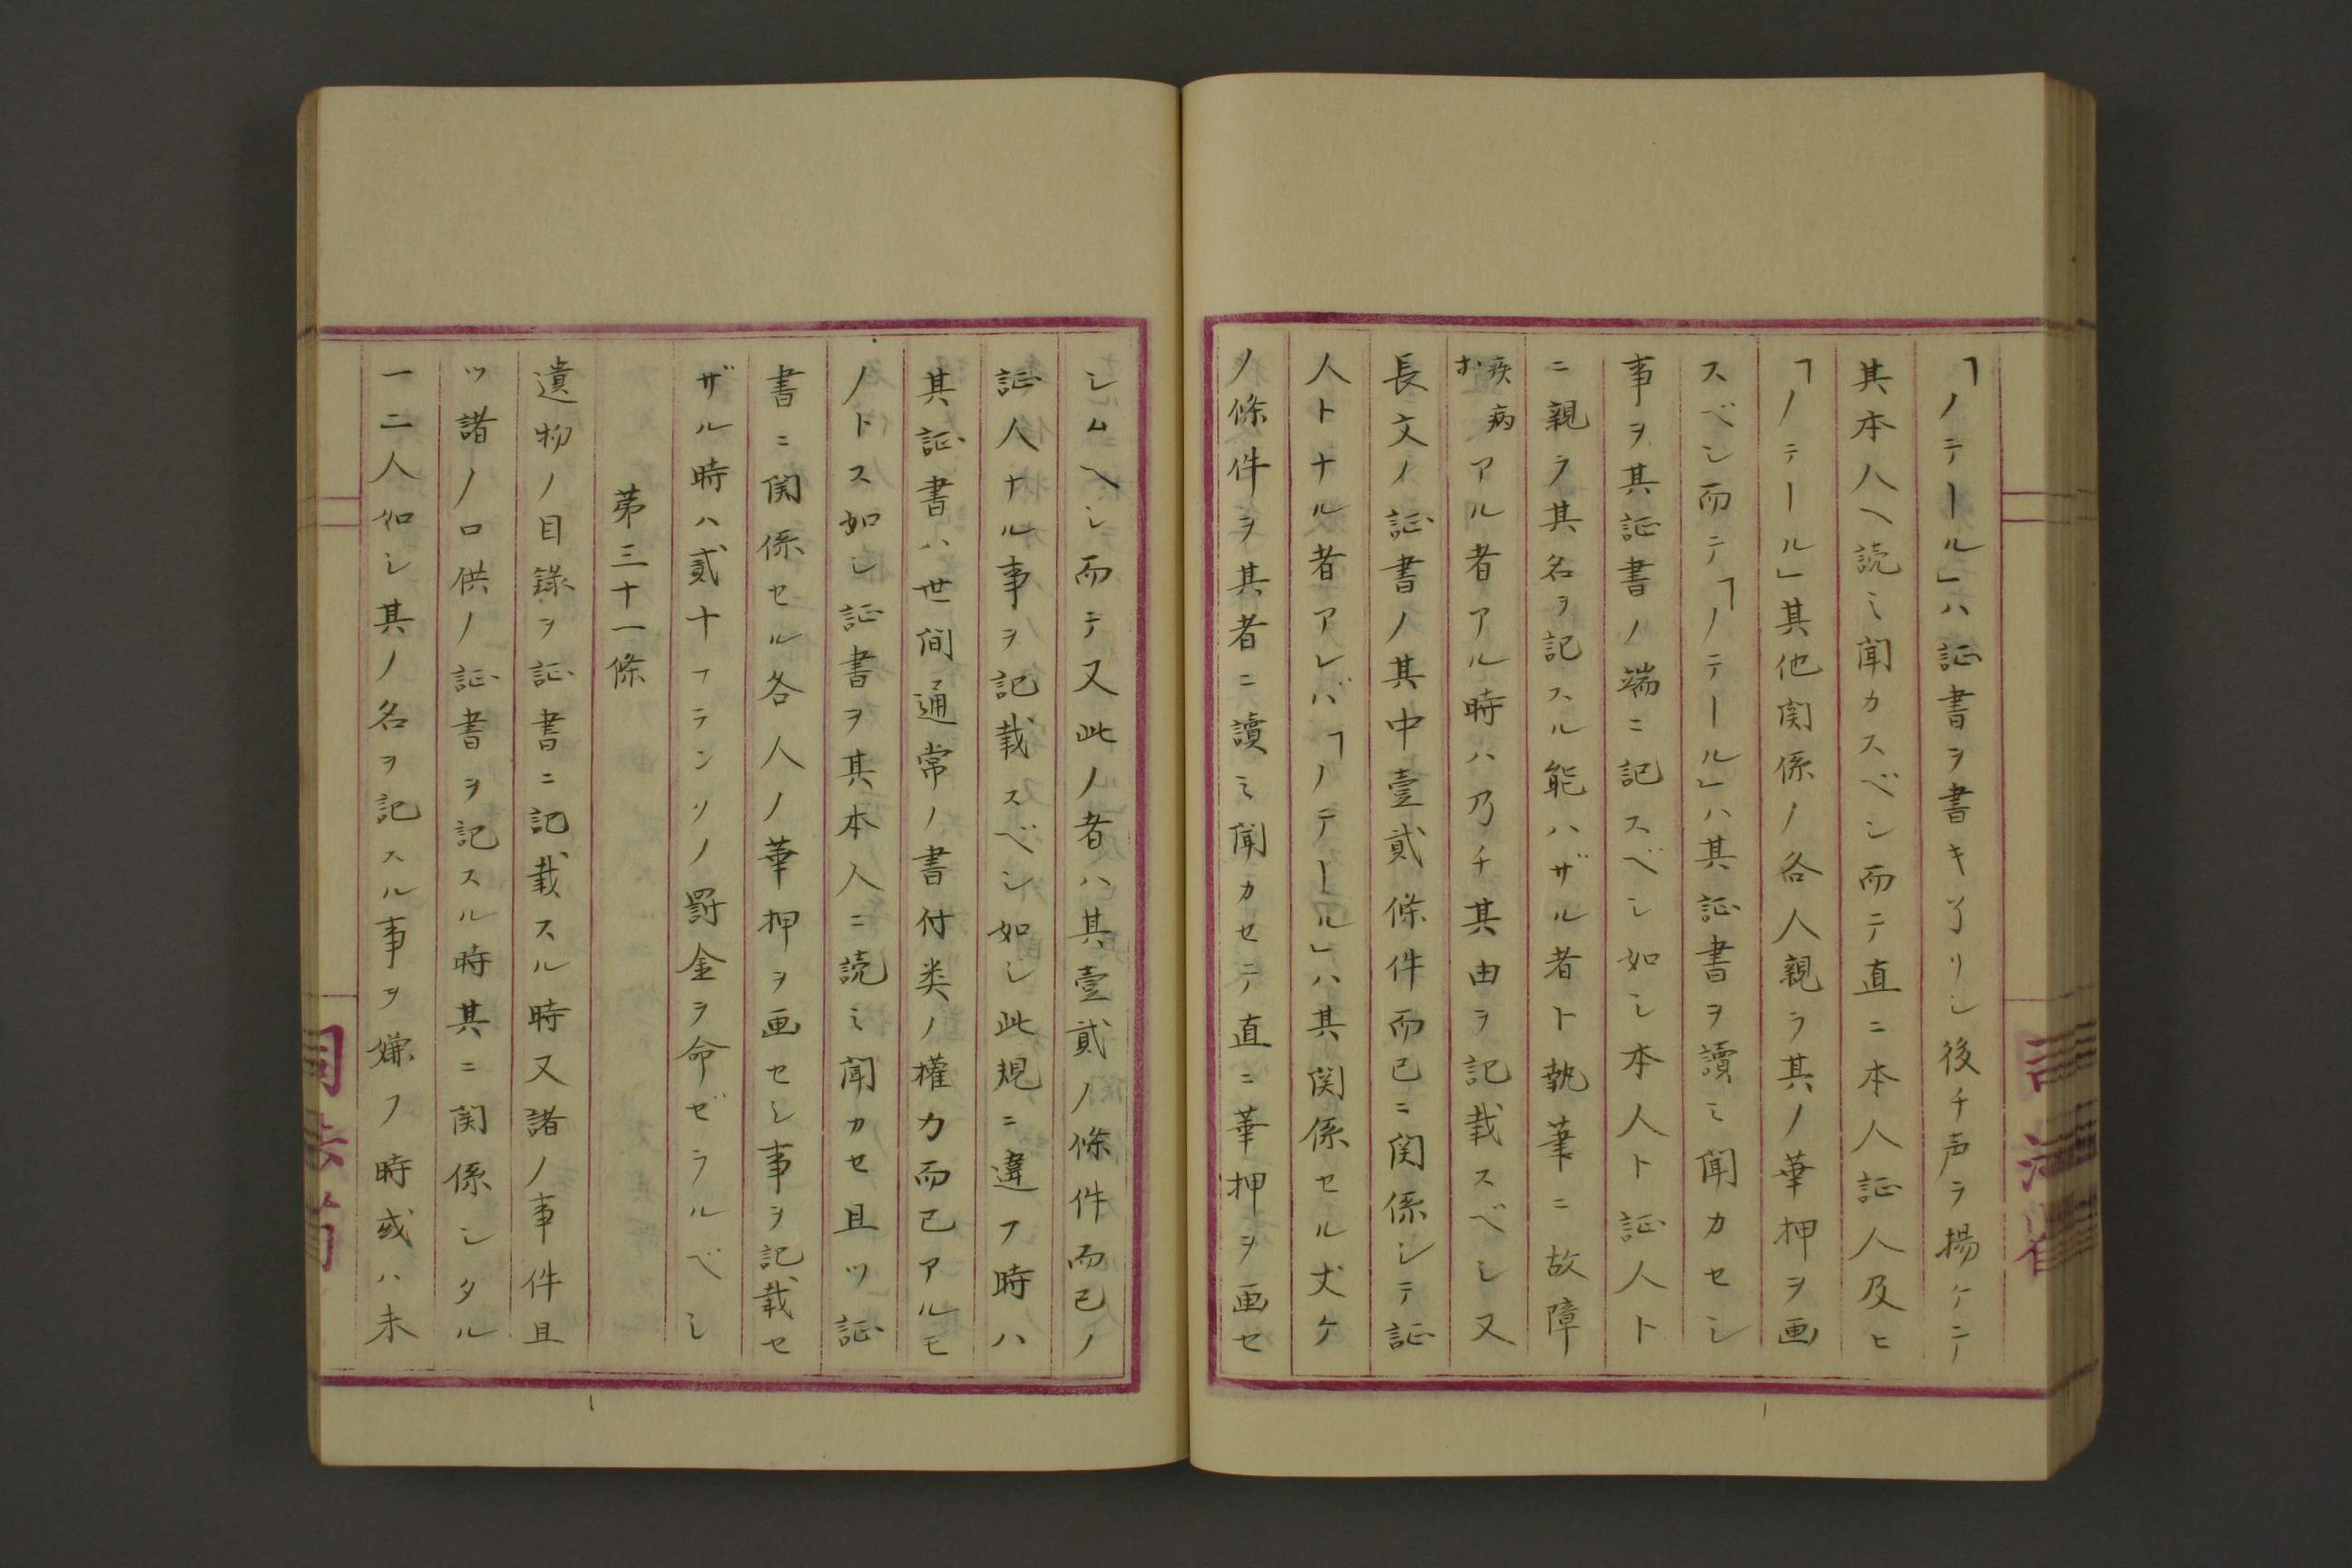 「ノテール」ハ証書ヲ書キ了リシ後チ声ヲ揚ケテ
其本人ヘ読ミ聞カスベシ而テ直ニ本人証人及ヒ
「ノテール」其他関係ノ各人親ラ其ノ華押ヲ画
スベシ而テ「ノテール」ハ其証書ヲ讀ミ聞カセシ
事ヲ其証書ノ端ニ記スベシ如シ本人ト証人ト
ニ親ラ其名ヲ記スル能ハザル者ト執筆ニ故障
疾病アル者アル時ハ乃チ其由ヲ記載スベシ又
長文ノ証書ノ其中壹貳條件而已ニ関係シテ証
人トナル者アレバ「ノテール」ハ其関係セル丈ケ
ノ條件ヲ其者ニ讀ミ聞カセテ直ニ華押ヲ画セ
シムヘシ而テ又此ノ者ハ其壹貳ノ條件而已ノ
証人ナル事ヲ記載スベシ如シ此規ニ違フ時ハ
其証書ハ世間通常ノ書付类ノ權力而已アルモ
ノトス如シ証書ヲ其本人ニ読ミ聞カセ且ツ証
書ニ関係セル各人ノ華押ヲ画セシ事ヲ記載セ
ザル時ハ貳十フランクノ罸金ヲ命ゼラルベシ
第三十一條
遺物ノ目録ヲ証書ニ記載スル時又諸ノ事件且
ツ諸ノ口供ノ証書ヲ記スル時其ニ関係シタル
一二人如シ其ノ名ヲ記スル事ヲ嫌フ時或ハ未